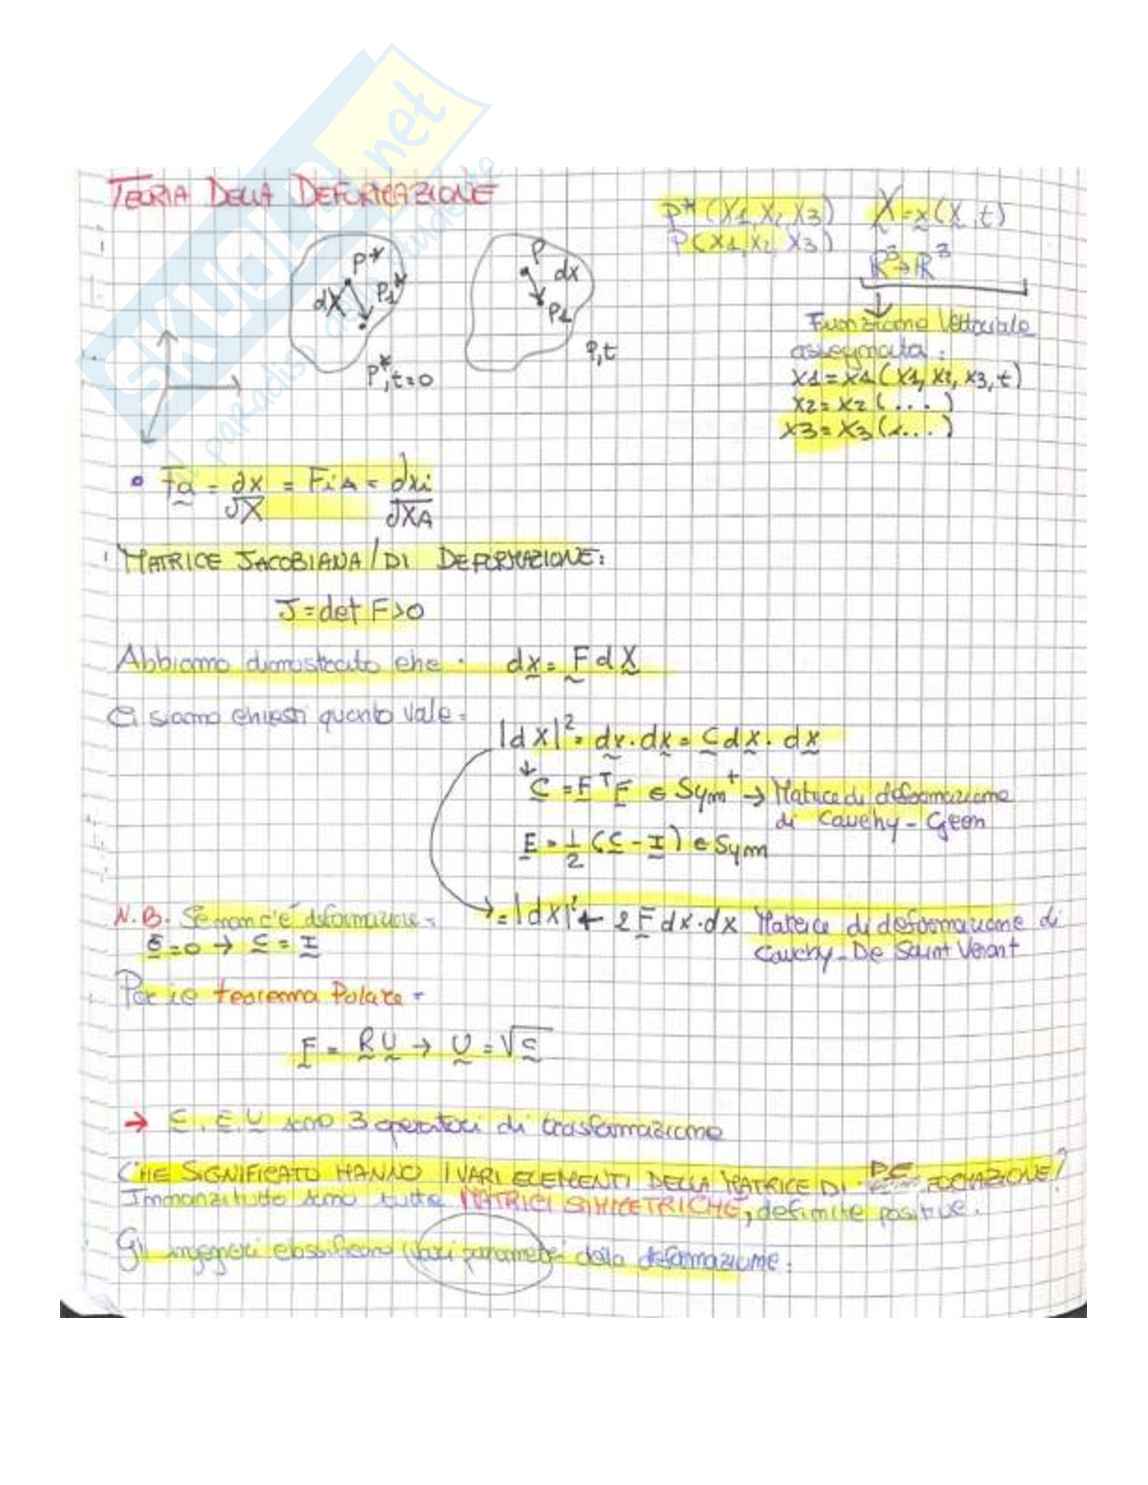 TEORIA DELLA DEFORMAZIONE
P* (X1, X2, X3) X = x(X, t)
P(x1, x2, x3)
R³→R³
Funzione Vettoriale
assegnata:
x1 = x1 (X1, X2, X3, t)
x2 = x2 (...)
x3 = x3 (....)
P*
dX P1*
P*, t=0
P
dx
P1
P, t
= ∂x/∂X = FiA = ∂xi/∂XA
MATRICE JACOBIANA / DI DEFORMAZIONE:
J = det F > 0
Abbiamo dimostrato che: dx = F dX
Ci siamo chiesti quanto vale:
|dx|² = dx · dx = C dx · dx
C = FᵀF ∈ Sym⁺ → Matrice di deformazione
di Cauchy - Green
E = 1/2 (C - I) ∈ Sym
N.B. Se non c'è deformazione:
E = 0 → C = I
= |dX|² + 2 F dx · dx Matrice di deformazione di
Cauchy - De Saint Venant
Per il teorema Polare:
F = R U → U = √C
→ C, E, U sono 3 operatori di trasformazione
CHE SIGNIFICATO HANNO I VARI ELEMENTI DELLA MATRICE DI DEFORMAZIONE?
Innanzitutto sono tutte MATRICI SIMMETRICHE, definite positive.
Gli ingegneri classificano i vari parametri della deformazione:
SKUOLA.net